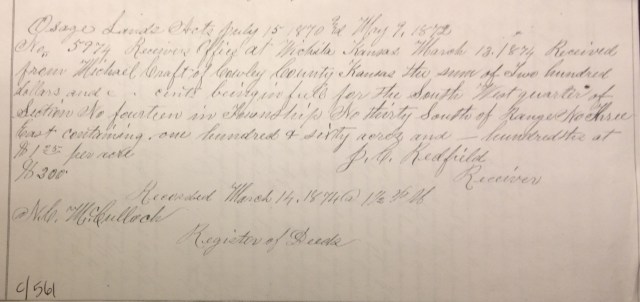 Osage Lands Acts July 15 1870 & May 9, 1872
No, 5974 Receivers Office at Wichita Kansas March 13, 1874 Received
from Michael Craft of Cowley County Kansas the sum of Two hundred
dollars and cents being in full for the South West quarter of
Section No fourteen in Township No thirty South of Range No three
East containing one hundred & sixty acres and — hundredths at
$1.25 per acre J. C. Redfield
$200 Receiver
Recorded March 14, 1874 @ 1½ P M
N. C. McCulloch
Register of Deeds
C/561